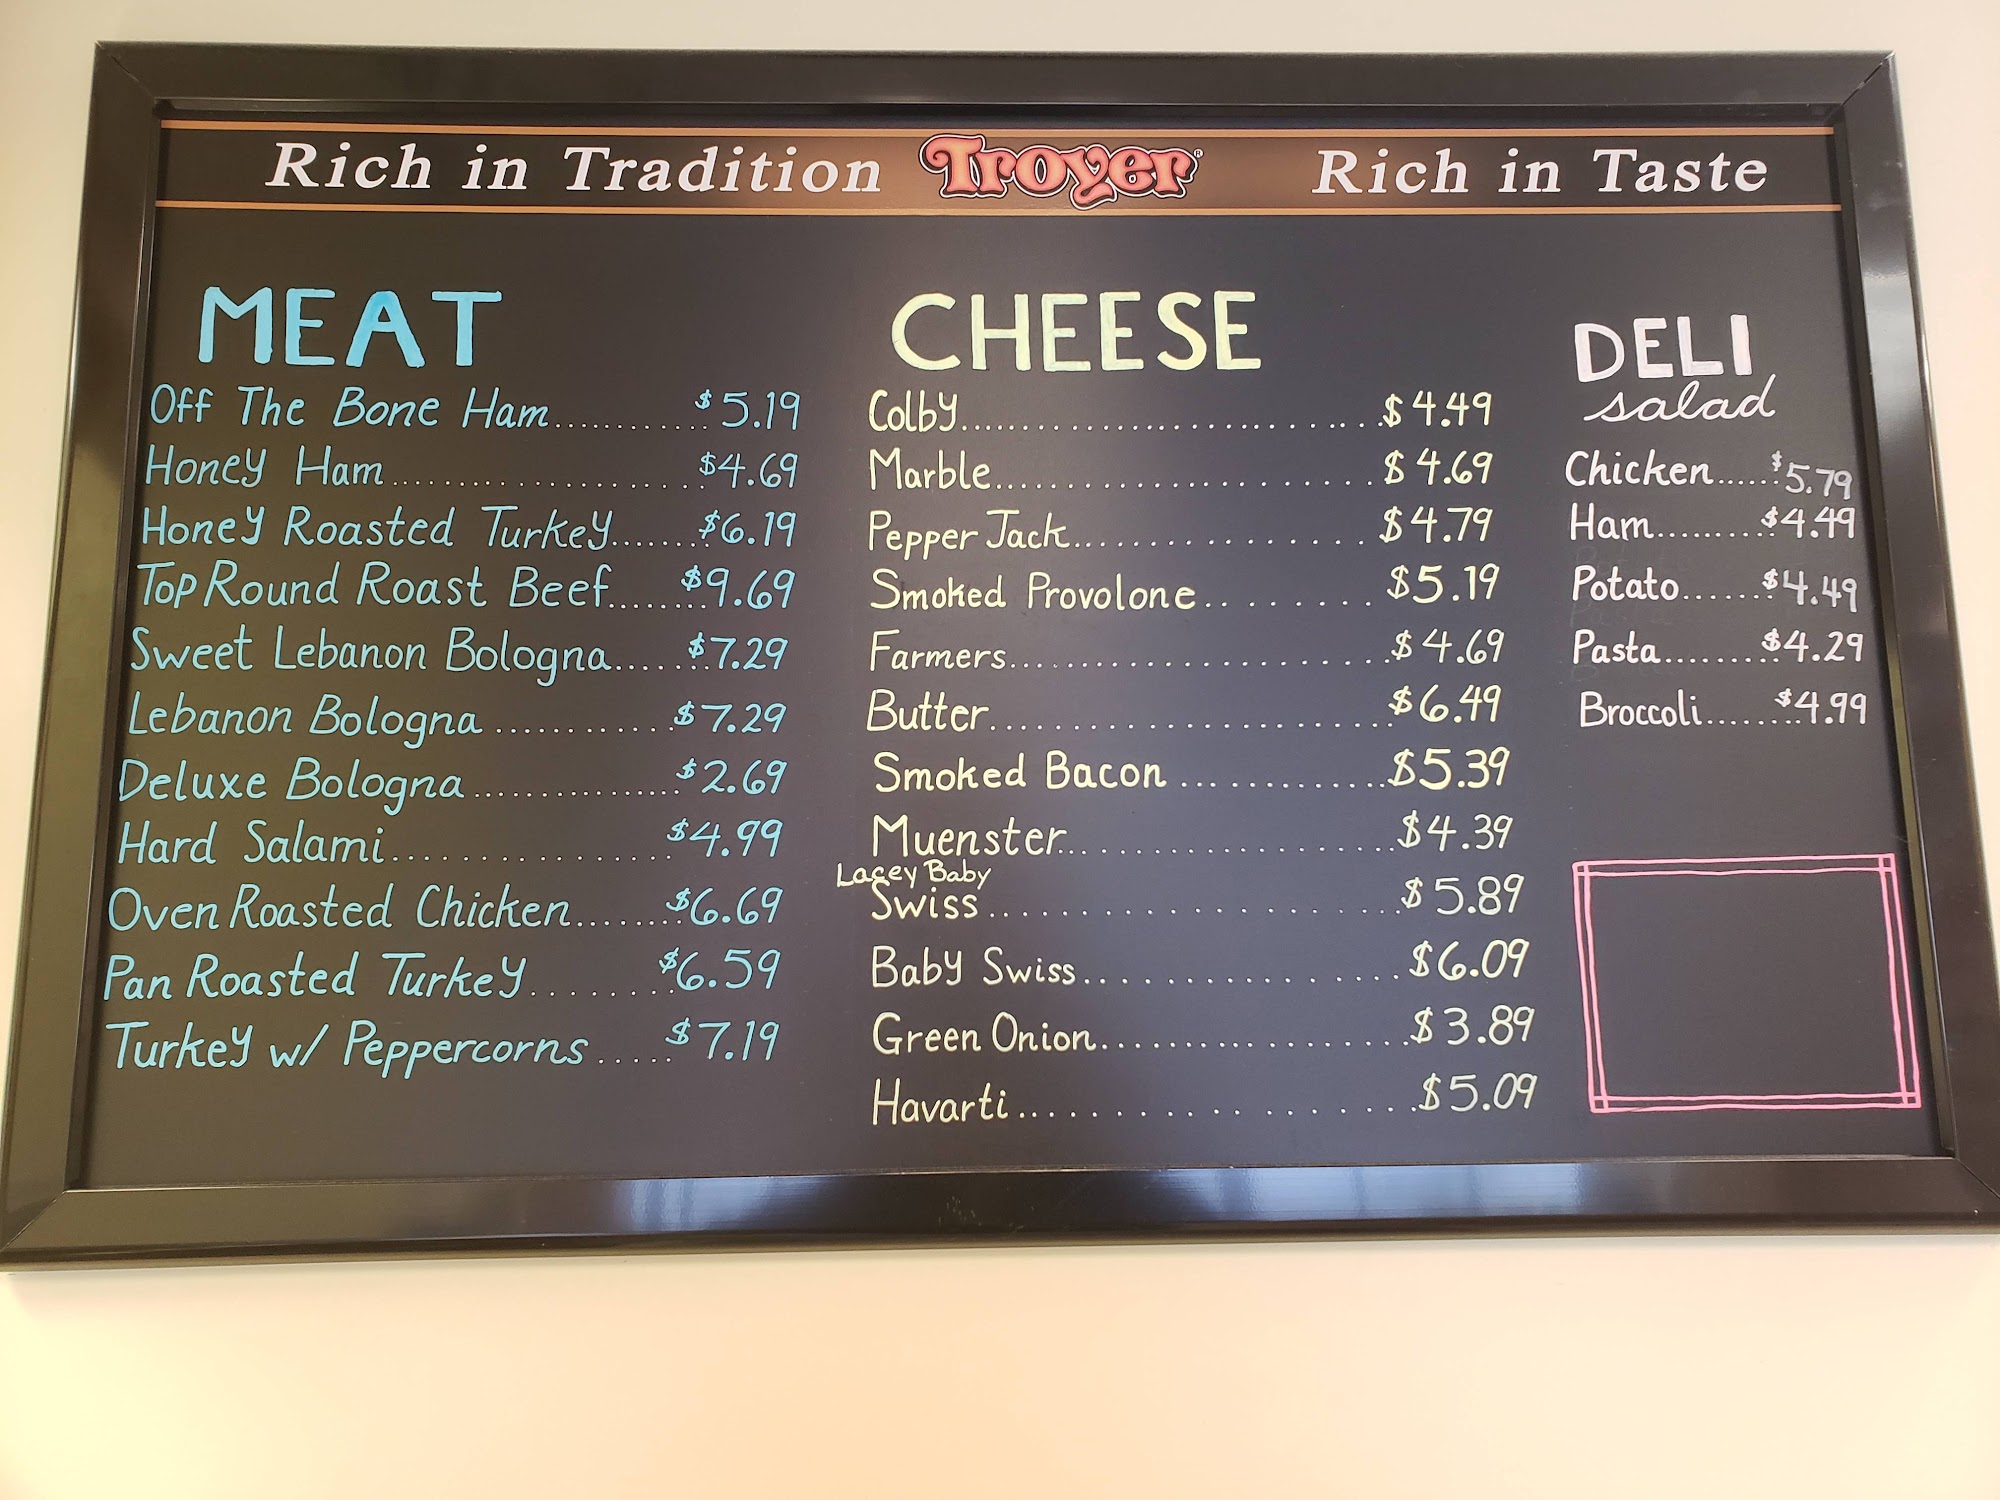 Rich in Tradition Troyer® Rich in Taste
MEAT
Off The Bone Ham............$5.19
Honey Ham....................$4.69
Honey Roasted Turkey.......$6.19
Top Round Roast Beef.......$9.69
Sweet Lebanon Bologna......$7.29
Lebanon Bologna............$7.29
Deluxe Bologna...............$2.69
Hard Salami.................$4.99
Oven Roasted Chicken.......$6.69
Pan Roasted Turkey........$6.59
Turkey w/ Peppercorns.....$7.19
CHEESE
Colby........................$4.49
Marble......................$4.69
Pepper Jack................$4.79
Smoked Provolone.........$5.19
Farmers.....................$4.69
Butter......................$6.49
Smoked Bacon............$5.39
Muenster...................$4.39
Lacey Baby
Swiss.....................$5.89
Baby Swiss................$6.09
Green Onion...............$3.89
Havarti...................$5.09
DELI
salad
Chicken......$5.79
Ham.........$4.49
Potato......$4.49
Pasta.........$4.29
Broccoli.......$4.99